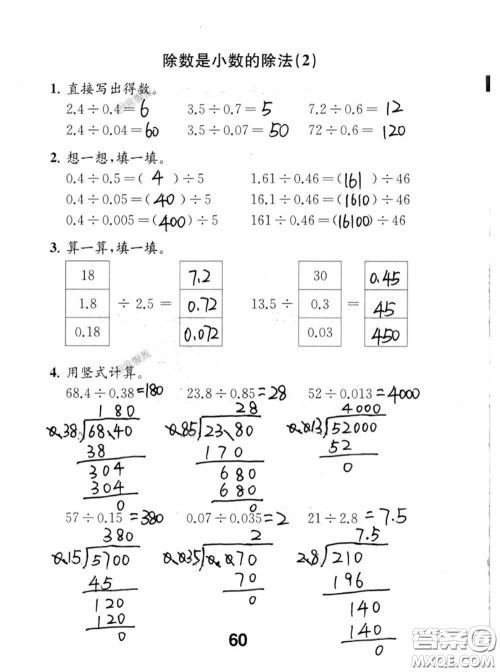 除数是小数的除法(2)
1. 直接写出得数。
2.4÷0.4=6 3.5÷0.7=5 7.2÷0.6=12
2.4÷0.04=60 3.5÷0.07=50 72÷0.6=120
2. 想一想,填一填。
0.4÷0.5=(4)÷5 1.61÷0.46=(161)÷46
0.4÷0.05=(40)÷5 16.1÷0.46=(1610)÷46
0.4÷0.005=(400)÷5 161÷0.46=(16100)÷46
3. 算一算,填一填。
18 7.2 30 0.45
1.8 ÷2.5= 0.72 13.5÷ 0.3 = 45
0.18 0.072 0.03 450
4. 用竖式计算。
68.4÷0.38=180 23.8÷0.85=28 52÷0.013=4000
180 28 4000
0.38 68.40 0.85 23.80 0.013 52000
38 170 52
304 680 0
304 680
0 0
57÷0.15=380 0.07÷0.035=2 21÷2.8=7.5
380 2 7.5
0.15 5700 0.035 0.070 2.8 210
45 70 196
120 0 140
120 140
0 0
60
答案圈
MXQE.COM